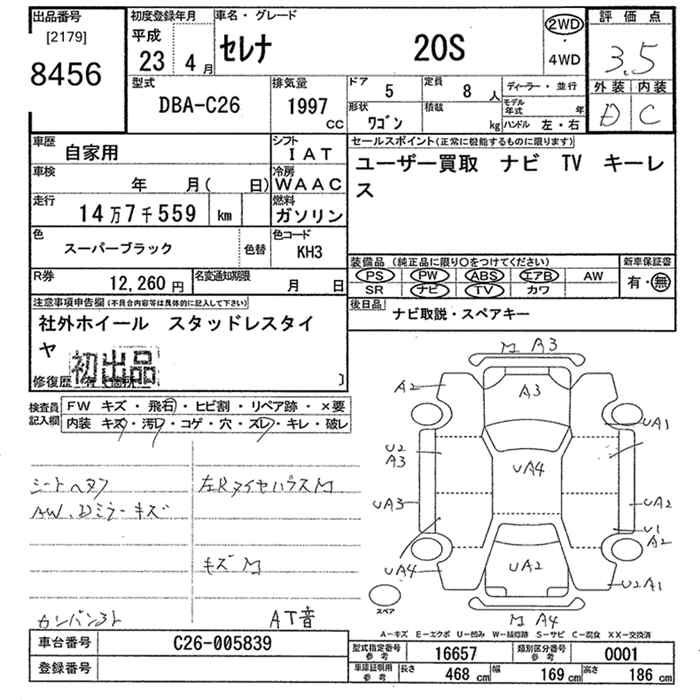 出品番号
[2179]
8456
初度登録年月
平成
23 4月
車名・グレード
セレナ 20S
2WD
・
4WD
評価点
3.5
外装 内装
D C
型式
DBA-C26
排気量
1997
CC
ドア
5
定員
8 人
形状
ワゴン
積載
kg
ディーラー・並行
モデル年式 年
ハンドル 左・右
車歴
自家用
シフト
IAT
車検
年 月( 日)
冷房
WAAC
走行
14万7千559 km
燃料
ガソリン
色
スーパーブラック
色替
色コード
KH3
R券
12,260円
名変通知期限
月 日
セールスポイント(正常に機能するものに限ります)
ユーザー買取 ナビ TV キーレ
ス
装備品(純正品に限り○をつけてください)
PS PW ABS エアB AW
SR ナビ TV カワ
新車保証書
有・無
後日品
ナビ取説・スペアキー
注意事項申告欄(不具合内容等は具体的に記入して下さい)
社外ホイール スタッドレスタイ
ヤ
初出品
修復歴
検査員
記入欄
FW キズ・飛石・ヒビ割・リペア跡・×要
内装 キズ・汚レ・コゲ・穴・ズレ・キレ・破レ
シートヘタリ
AW、Dミラーキズ
左Rタイヤハウス M
キズ M
AT音
M A3
A2
A3
UA1
U2
A3
UA4
UA3
UA2
U1
A2
UA4
UA2
U2A1
スペア
M A4
A-キズ E-エクボ U-凹み W-補修跡 S-サビ C-腐食 XX-交換済
車台番号
C26-005839
登録番号
型式指定番号
参考
16657
類別区分番号
参考
0001
車庫証明用
参考
長さ 468 cm 幅 169 cm 高さ 186 cm